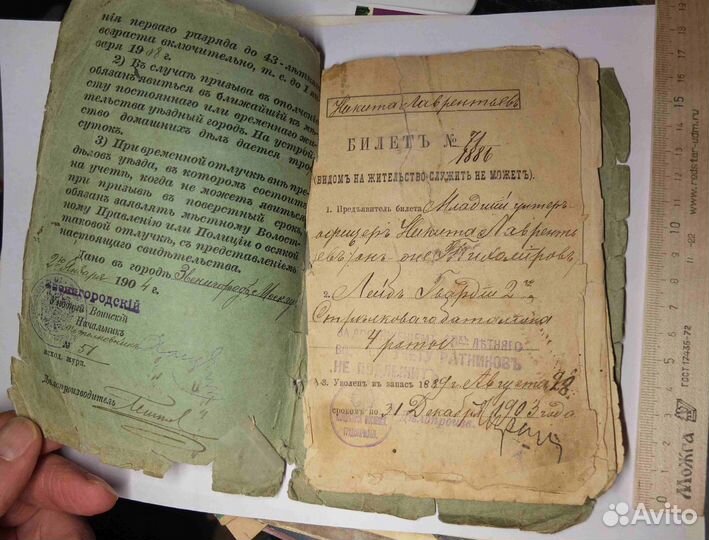 нія перваго разряда до 43-лѣтняго
возраста включительно, т. е. до 1 января
1908 г.
2) Въ случаѣ призыва въ ополченіе
обязанъ явиться въ ближайшій къ мѣсту
постояннаго или временнаго жительства
уѣздный городъ. На устройство
домашнихъ дѣлъ дается трое
сутокъ.
3) При временной отлучкѣ внѣ предѣловъ
уѣзда, въ которомъ состоитъ
на учетѣ, когда не можетъ явиться
при призывѣ въ поверстный срокъ
обязанъ заявлять мѣстному Волостному
Правленію или Полиціи о всякой
таковой отлучкѣ, съ представленіемъ
настоящаго свидѣтельства.
Дано въ городѣ
Января 1904 г.
ЗВЕНИГОРОДСКІЙ
Уѣздный Воинскій
Начальникъ
№ 51
исход. журн.
Дѣлопроизводитель
Никита Лаврентьевъ
БИЛЕТЪ № 71
1886
(ВИДОМЪ НА ЖИТЕЛЬСТВО СЛУЖИТЬ НЕ МОЖЕТЪ).
1. Предъявитель билета Младшій унтеръ
офицеръ Никита Лаврентьевъ
онъ же Тихоміровъ
2. Лейбъ Гвардіи 2го
Стрѣлковаго баталіона
4 роты
РАТНИКОВЪ
НЕ
3. Уволенъ въ запасъ 1889 г. Августа 28
срокомъ по 31 Декабря 1903 года
0 1 2 3 4 5 6 7 8 9 10 11 12 13 14 15
www.rodstar-udm.ru
ГОСТ 17435-72
Можга
Avito